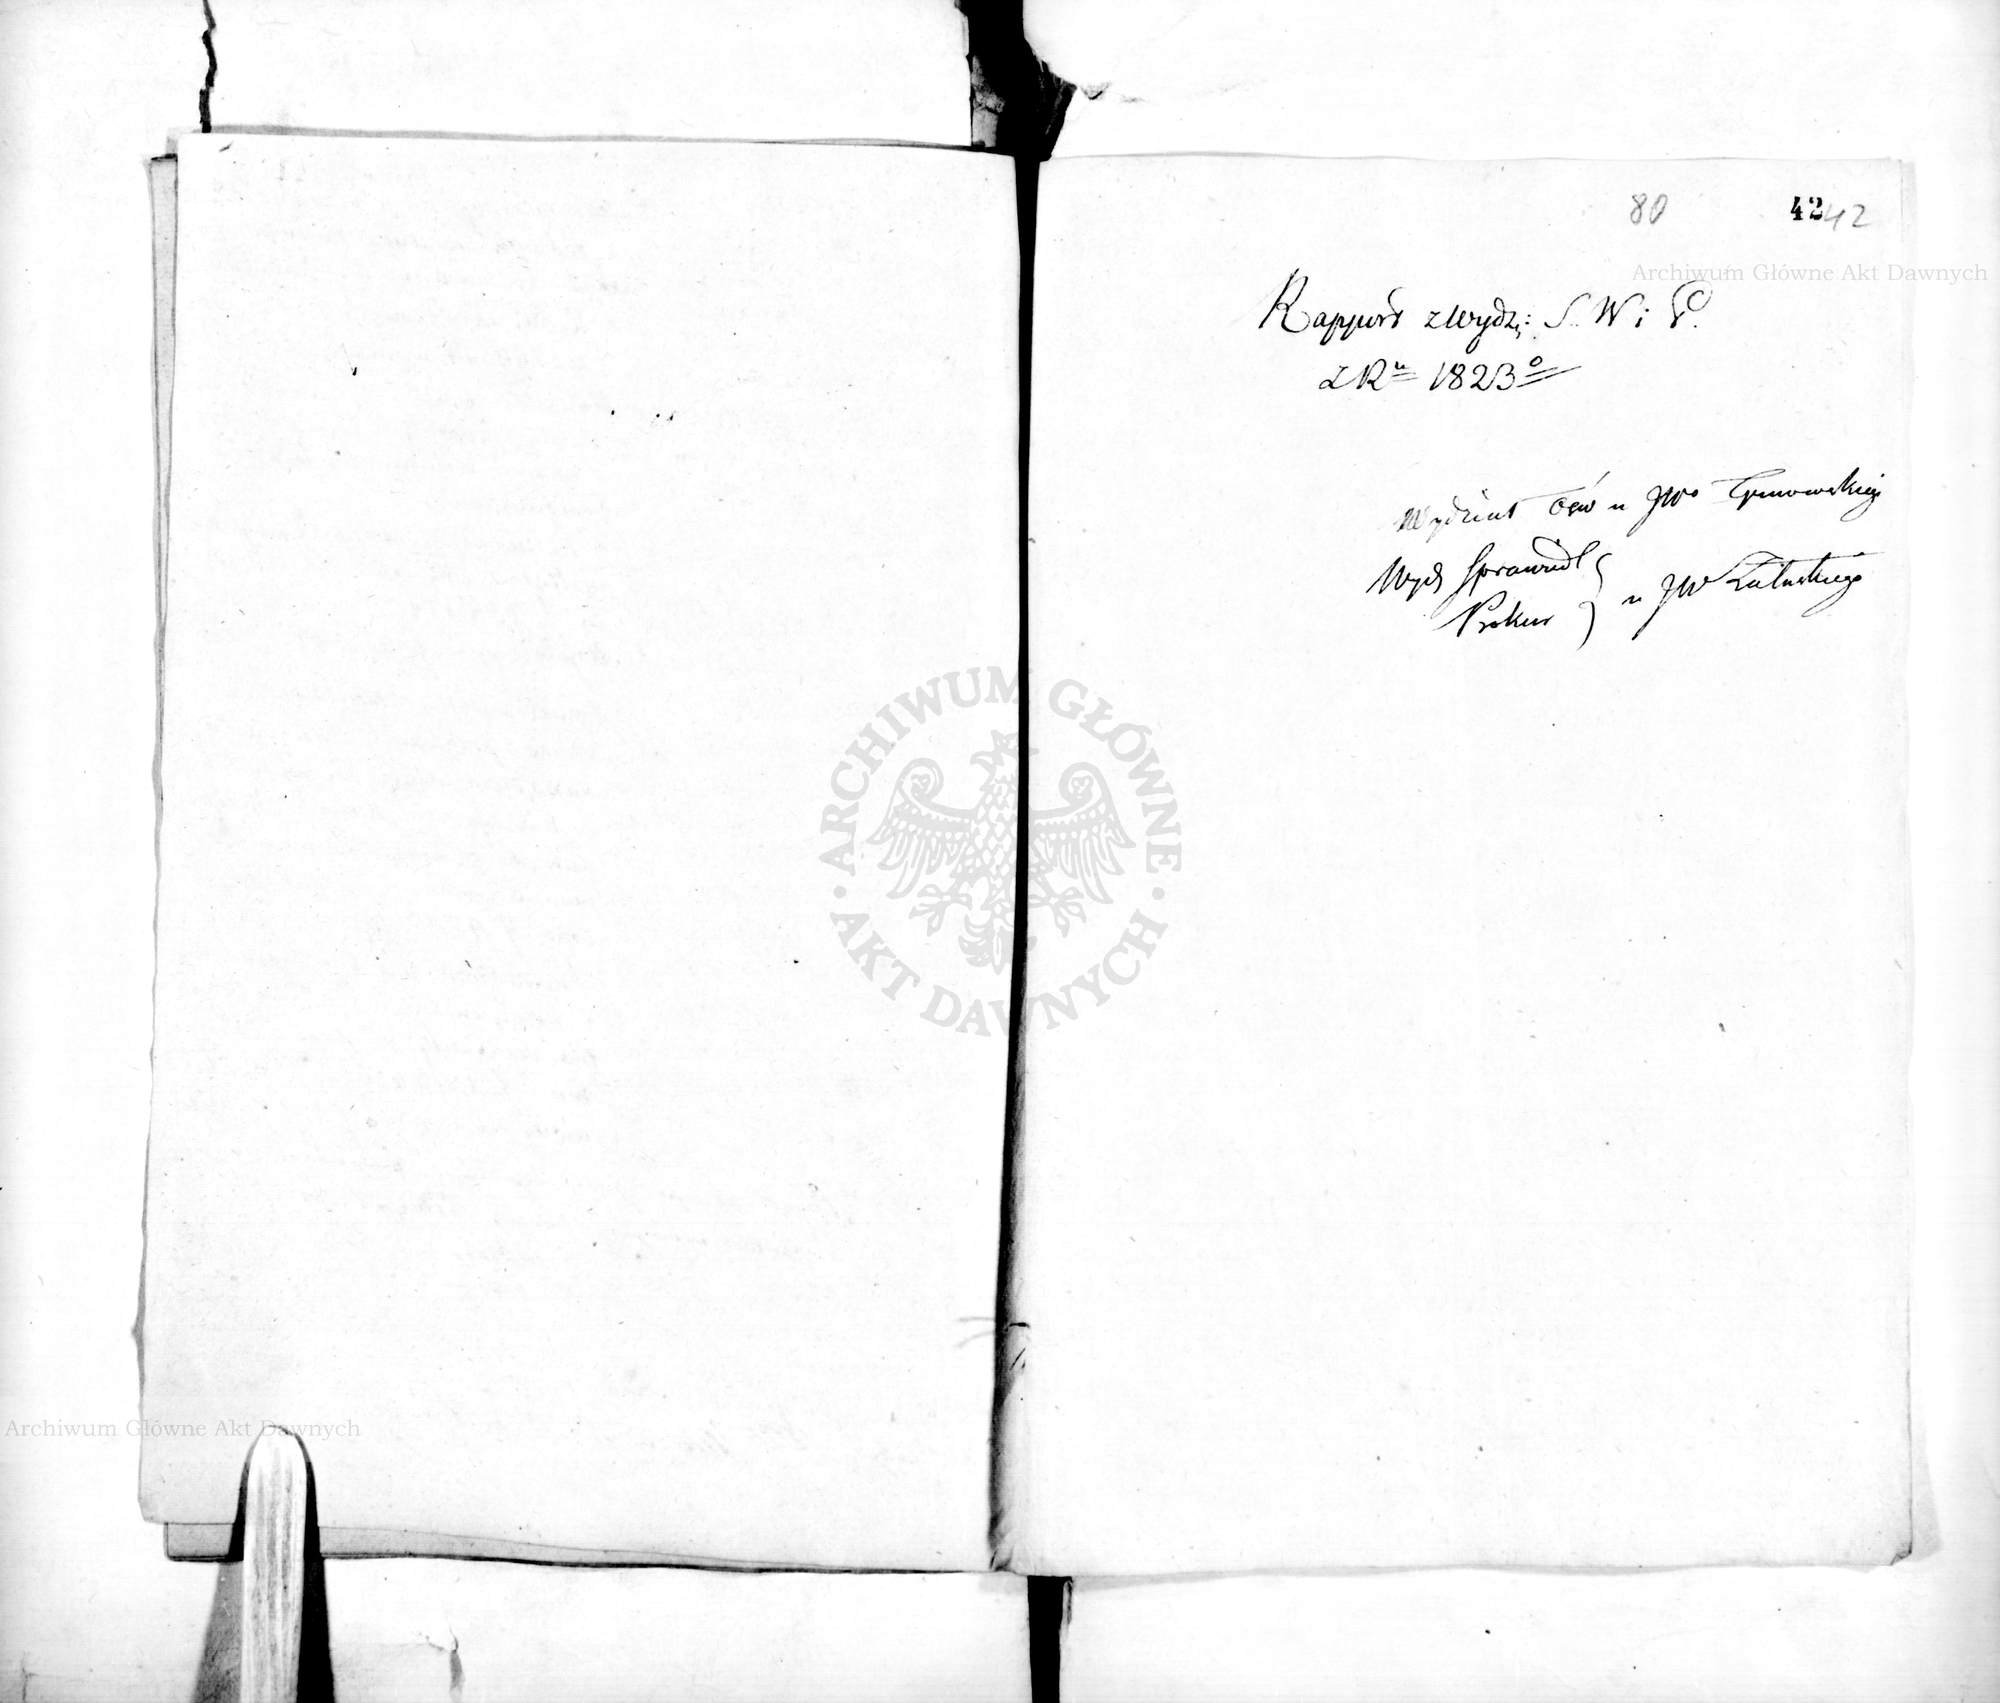 80 42 42
Archiwum Główne Akt Dawnych
Rapport z Wydz: S. W i P.
z Ru 1823o
Wydział Ośw u JWo Tymowskiego
Wydz Sprawiedl
Prokur u JW Załuskiego
ARCHIWUM GŁÓWNE
AKT DAWNYCH
Archiwum Główne Akt Dawnych